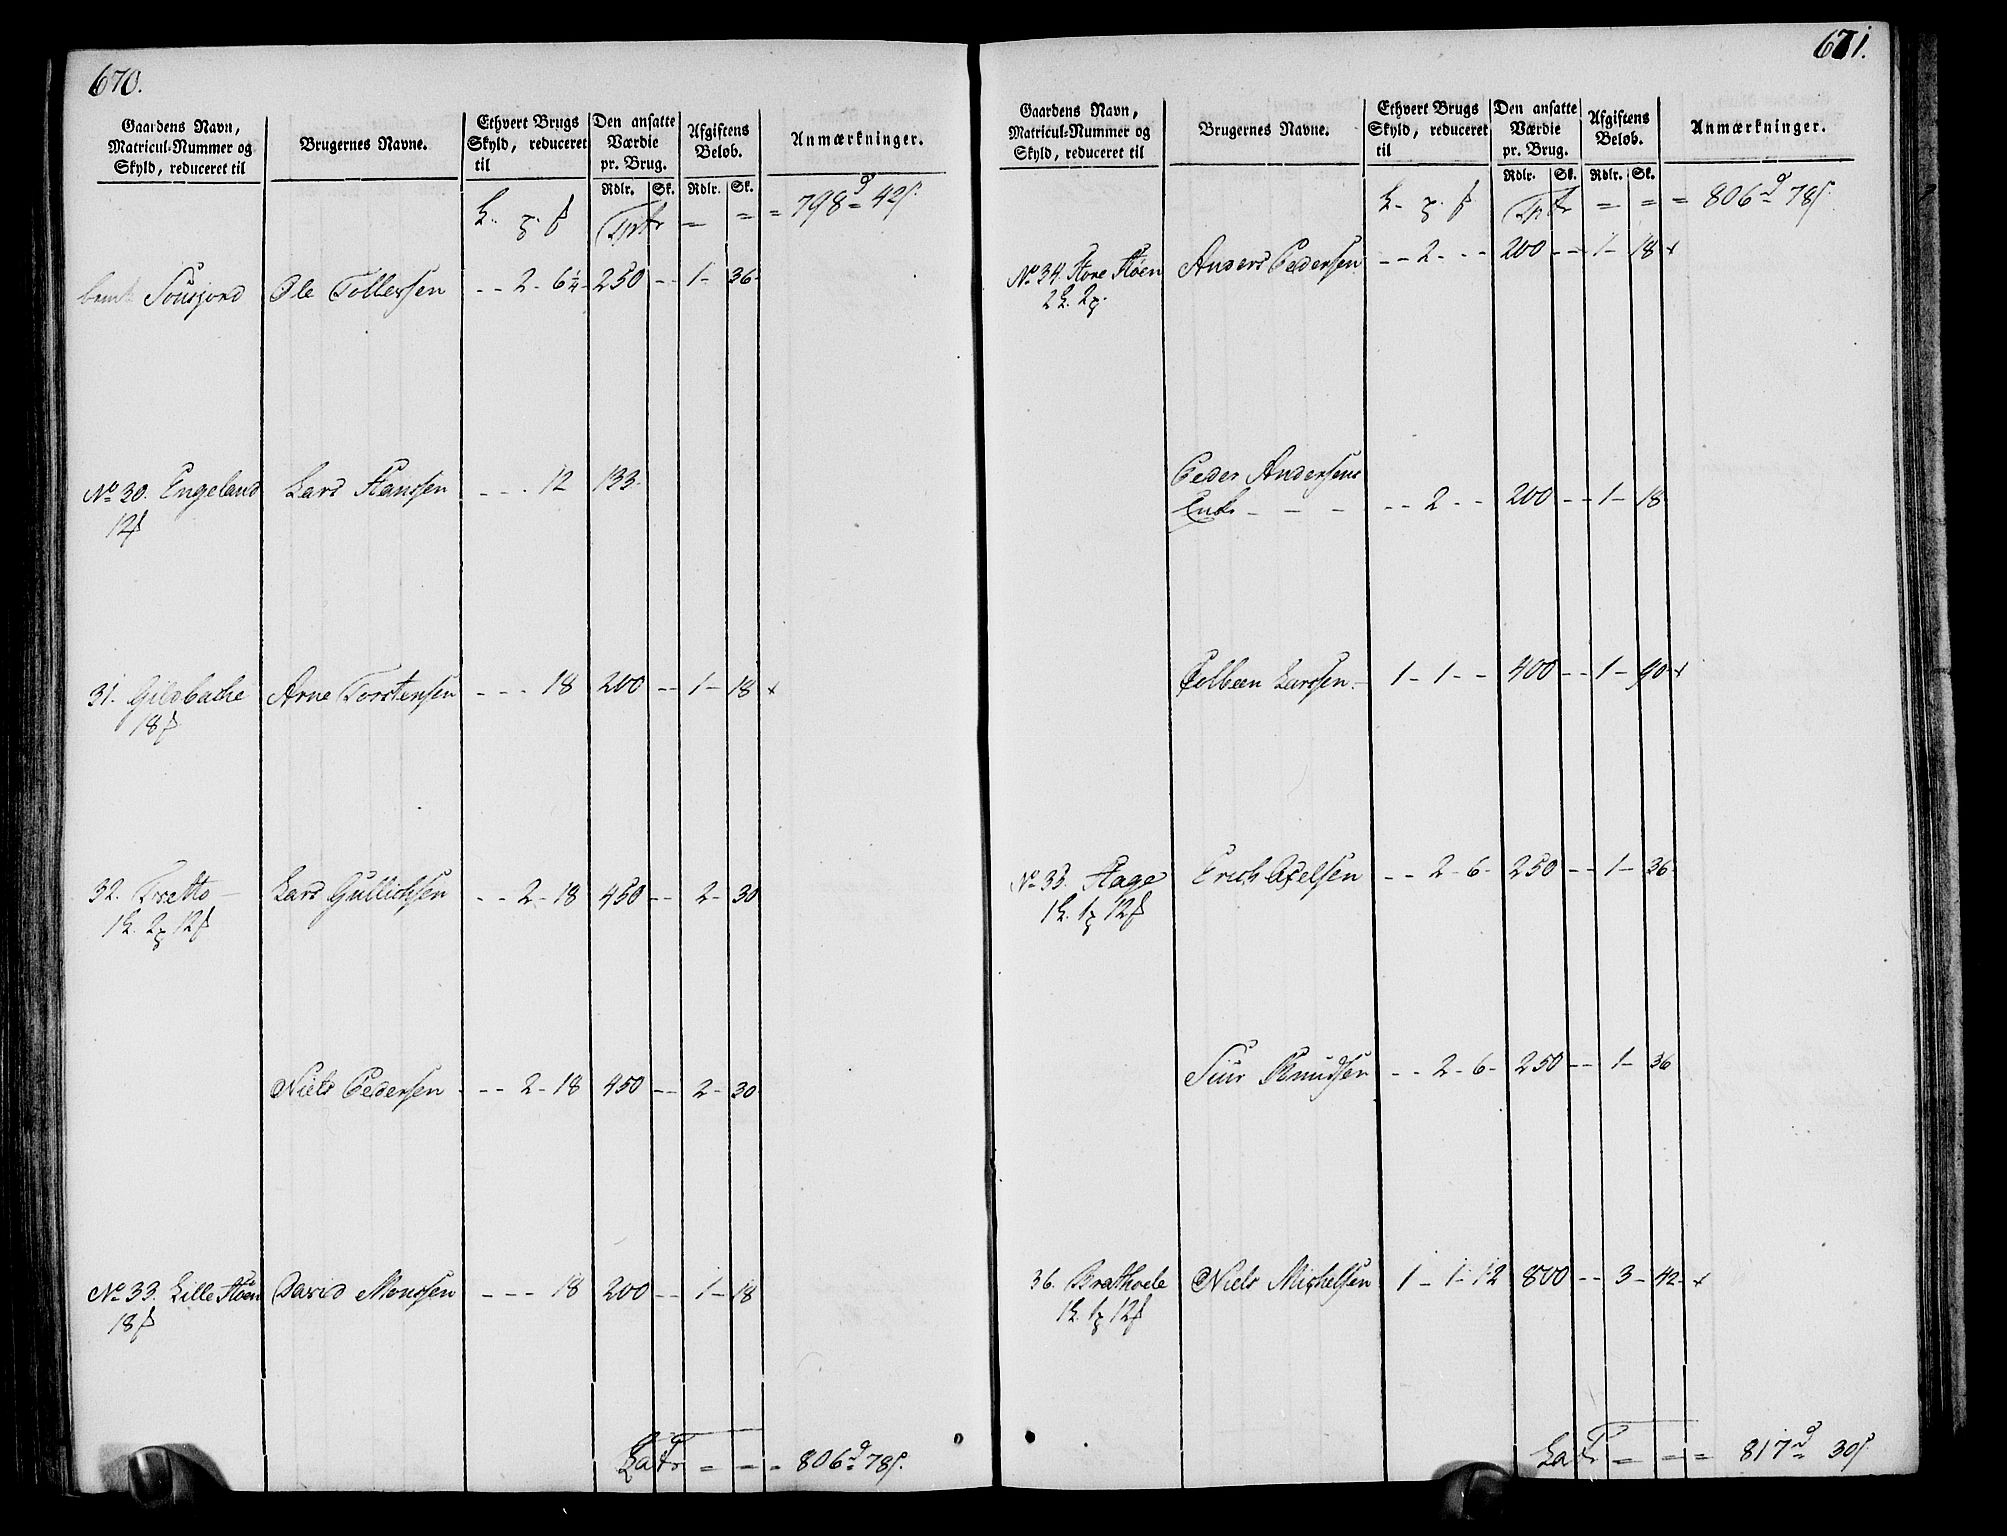 670.
Gaardens Navn, Matricul-Nummer og Skyld, reduceret til
Brugernes Navne.
Ethvert Brugs Skyld, reduceret til
Den ansatte Værdie pr. Brug.
Afgiftens Beløb.
Anmærkninger.
Rdlr. Sk. Rdlr. Sk.
Tprtr = = = 798 d = 42 s
Ole Tollevsen - - 2 - 6¼ - 250 - - 1 - 36 -
No 30. Engeland Lars Hanssen - - - 12 133.
12
31. Gildbakke Arne Torstensen - - - 18 200 - - 1 - 18 x
18
32. Trætto - Lars Gullichsen - - 2 - 18 450 - - 2 - 30
1 2 12
Niels Pedersen - - 2 - 18 450 - - 2 - 30
No 33. Lille Høen David Monssen - - - 18 200 - - 1 - 18
18
LaTr = = = 806 d = 78 s.
671.
Gaardens Navn, Matricul-Nummer og Skyld, reduceret til
Brugernes Navne.
Ethvert Brugs Skyld, reduceret til
Den ansatte Værdie pr. Brug.
Afgiftens Beløb.
Anmærkninger.
Rdlr. Sk. Rdlr. Sk.
Tprtr = = = 806 d = 78 s.
No 34. Store Høen Anders Pedersen - - 2 - - 200 - - 1 - 18 x
2 2
Peder Andersens
Enke - - - - - 2 - - 200 - - 1 - 18
Colbeen Larssen - 1 - 1 - - 400 - - 1 - 90 x
No 35. Hage Erich Axelsen - - 2 - 6 - 250 - - 1 - 36
1 1 12
Siur Knudsen - - 2 - 6 - 250 - - 1 - 36
36. Brathoele Niels Michelsen 1 - 1 - 12 800 - - 3 - 42 - x
1 1 12
LaTr = = = 817 d = 30 s